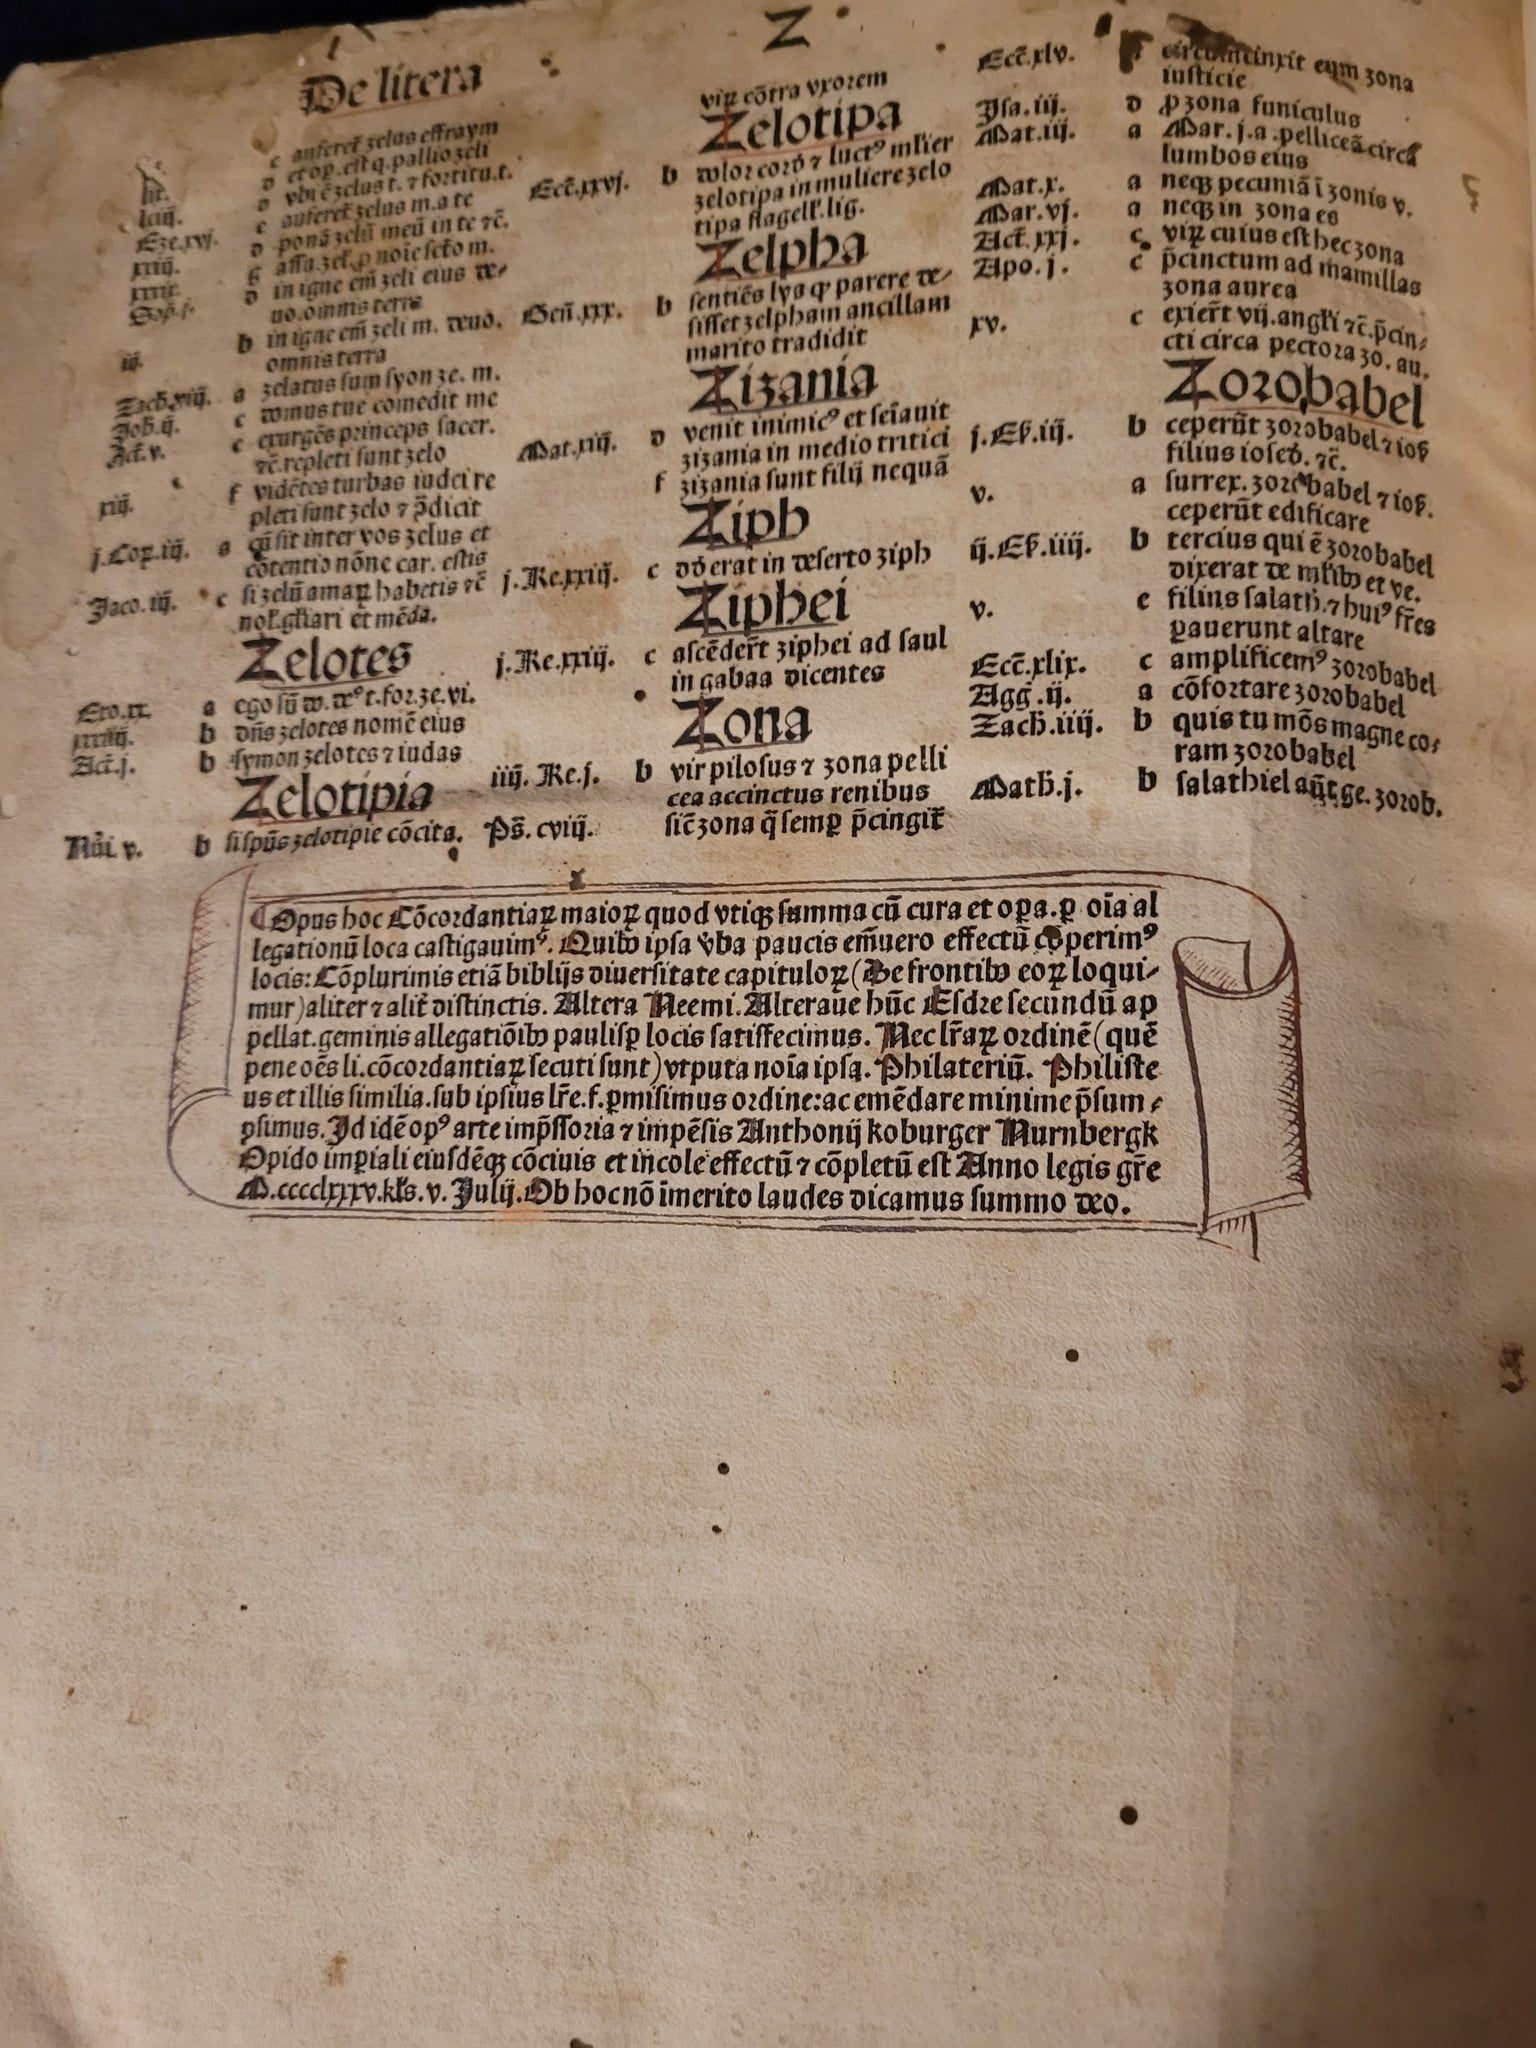 De litera
Z
c auferet᷑ zelus effraym
d et oꝑ. est q. pallio zeli
lxiij. d vbi ē zelus t. ⁊ fortitu. t.
Eze.xvj. c auferet᷑ zelus m. a te
xxiij. d ponā zelū meū in te ⁊c̄.
g assa. zel. ꝓ noīe scto m.
Sop̄.j. d in igne em̄ zeli eius de⸗
uo. omnis terra
iij. b in igne em̄ zeli m. deuo.
omnis terra
Zach.viij. a zelatus sum syon ze. m.
Joh.ij. c domus tue comedit me
Act.v. c exurgēs princeps sacer.
⁊c̄. repleti sunt zelo
xiij. f vidētes turbas iudei re
pleti sunt zelo ⁊ ꝯ̄dicit
j.Coꝝ.iij. a cū sit inter vos zelus et
cōtentio nōne car. estis
Jaco.iij. c si zelū amaꝝ habetis ⁊c̄
nol. gl̄iari et mēda.
Zelotes
Exo.xx. a ego sū do. de⁹ t. for. ze. vi.
xxxiiij. b dn̄s zelotes nomē eius
Act.j. b symon zelotes ⁊ iudas
Zelotipia
Nūi.v. b si sp̄us zelotipie cōcita.
viꝝ cōtra vxorem
Zelotipa
Ecc̄.xxvj. b dolor cord̄ ⁊ luct⁹ ml̄ier
zelotipa in muliere zelo
tipa flagell̄. lig.
Zelpha
Gen̄.xxx. b sentiēs lya ꝙ parere de⸗
sisset zelpham ancillam
marito tradidit
Zizania
Mat.xiij. d venit inimic⁹ et sēiauit
zizania in medio tritici
f zizania sunt filij nequā
Ziph
j.Re.xxiij. c dd̄ erat in deserto ziph
Ziphei
j.Re.xxiij. c ascēder̄t ziphei ad saul
in gabaa dicentes
Zona
iiij.Re.j. b vir pilosus ⁊ zona pelli
cea accinctus renibus
Ps̄.cviij. sic̄ zona q̄ semꝑ p̄cingit᷑
Ecc̄.xlv. circumcinxit eum zona
iusticie
Jsa.iij. d ꝓ zona funiculus
Mat.iij. a Mar.j.a. pelliceā circa
lumbos eius
Mat.x. a neqꝫ pecuniā ī zonis v.
Mar.vj. a neqꝫ in zona es
Act̄.xxj. c viꝝ cuius est hec zona
Apo.j. c p̄cinctum ad mamillas
zona aurea
xv. c exier̄t vij. angl̄i ⁊c̄. p̄cin⸗
cti circa pectora zo. au.
Zorobabel
j.Es̄.iij. b ceperūt zorobabel ⁊ ios̄
filius iosed̄. ⁊c̄.
v. a surrex. zorobabel ⁊ ios̄.
ceperūt edificare
ij.Es̄.iiij. b tercius qui ē zorobabel
dixerat de ml̄ib⁹ et ve.
v. e filius salath̄. ⁊ hui⁹ fr̄es
ꝑauerunt altare
Ecc̄.xlix. c amplificem⁹ zorobabel
Agḡ.ij. a cōfortare zorobabel
Zach.iiij. b quis tu mōs magne co⸗
ram zorobabel
Math.j. b salathiel aūt ge. zorob.
¶Opus hoc Cōcordantiaꝝ maioꝝ quod vtiqꝫ summa cū cura et oꝑa. ꝑ oīa al
legationū loca castigauim⁹. Quib⁹ ipsa v̄ba paucis em̄uero effectū coperim⁹
locis: Cōplurimis etiā biblijs diuersitate capituloꝝ (De frontib⁹ eoꝝ loqui⸗
mur) aliter ⁊ alit᷑ distinctis. Altera Neemi. Alteraue hūc Esdre secundū ap
pellat. geminis allegatiōib⁹ paulisꝑ locis satisfecimus. Nec lr̄aꝝ ordinē (quē
pene oēs li. cōcordantiaꝝ secuti sunt) vtputa noīa ipsa. Philateriū. Philiste
us et illis similia. sub ipsius lr̄e. f. ꝑmisimus ordine: ac emēdare minime p̄sum⸗
psimus. Jd idē op⁹ arte imp̄ssoria ⁊ impēsis Anthonij koburger Nurnbergk
Opido imꝑiali eiusdēqꝫ cōciuis et incole effectū ⁊ cōpletū est Anno legis gr̄e
M.cccclxxxv. kl̄s. v. Julij. Ob hoc nō īmerito laudes dicamus summo deo.